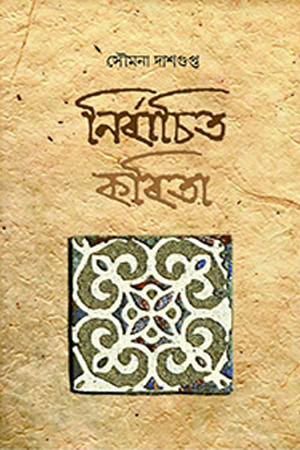 সৌমনা দাশগুপ্ত
নির্বাচিত
কবিতা